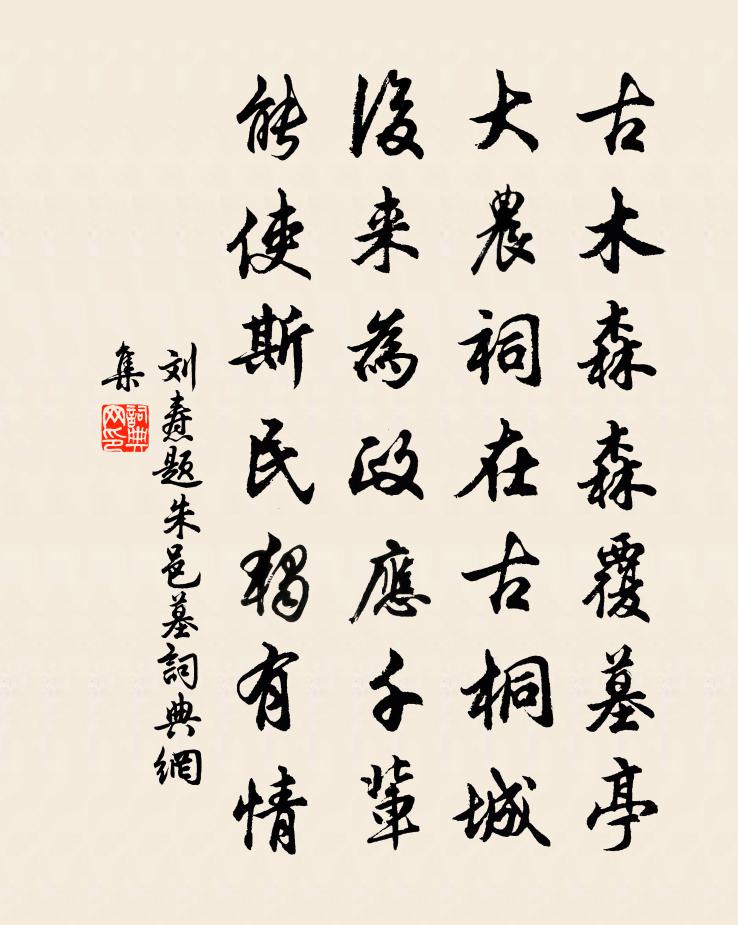 古木森森覆墓亭
大農祠在古桐城
後来為政應千輩
能使斯民獨有情
刘焘题朱邑墓詞典網
集
詞典
网印